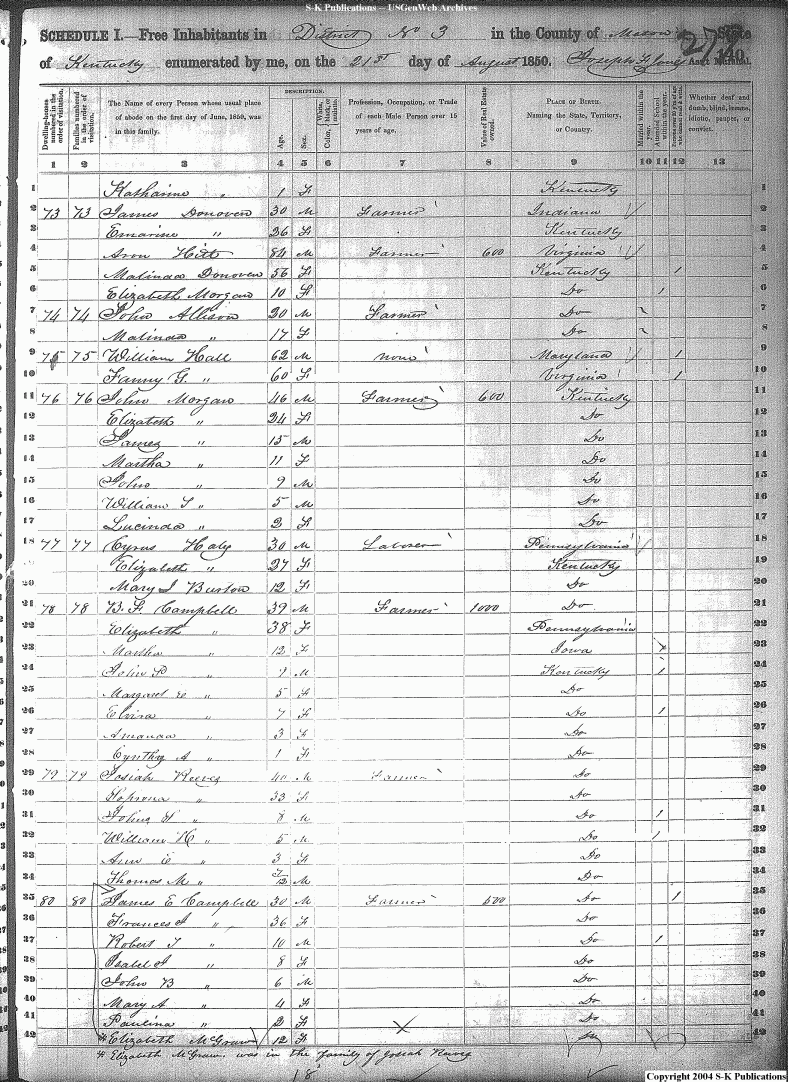 S-K Publications – USGenWeb Archives
SCHEDULE I.—Free Inhabitants in District No 3 in the County of Mason State
of Kentucky enumerated by me, on the 21st day of August 1850. Ass't Marshal.
275
140
Dwelling-houses numbered in the order of visitation.
Families numbered in the order of visitation.
The Name of every Person whose usual place of abode on the first day of June, 1850, was in this family.
DESCRIPTION.
Age.
Sex.
Color, White, black, or mulatto.
Profession, Occupation, or Trade of each Male Person over 15 years of age.
Value of Real Estate owned.
PLACE OF BIRTH. Naming the State, Territory, or Country.
Married within the year.
Attended School within the year.
Persons over 20 y'rs of age who cannot read & write.
Whether deaf and dumb, blind, insane, idiotic, pauper, or convict.
1 2 3 4 5 6 7 8 9 10 11 12 13
1 Katharine " 1 F Kentucky 1
2 73 73 James Donoven 30 M Farmer Indiana 2
3 Emarine " 26 F Kentucky 3
4 Aron Hitt 84 M Farmer 600 Virginia 4
5 Malinda Donoven 56 F Kentucky 1 5
6 Elizabeth Morgan 10 F Do 1 6
7 74 74 John Allison 20 M Farmer Do 7
8 Malinda " 17 F Do 8
9 75 75 William Hall 62 M none Maryland 1 9
10 Fanny G. " 60 F Virginia 1 10
11 76 76 John Morgan 46 M Farmer 600 Kentucky 11
12 Elizabeth " 24 F Do 12
13 James " 15 M Do 13
14 Martha " 11 F Do 14
15 John " 9 M Do 15
16 William T " 5 M Do 16
17 Lucinda " 2 F Do 17
18 77 77 Cyrus Haley 30 M Laborer Pennsylvania 18
19 Elizabeth " 27 F Kentucky 19
20 Mary J Burton 12 F Do 20
21 78 78 B. F. Campbell 39 M Farmer 1000 Do 21
22 Elizabeth " 38 F Pennsylvania 22
23 Martha " 12 F Iowa 23
24 John P " 9 M Kentucky 1 24
25 Margaret E " 5 F Do 25
26 Elvira " 7 F Do 1 26
27 Amanda " 3 F Do 27
28 Cynthy A " 1 F Do 28
29 79 79 Josiah Reeves 40 M Farmer Do 29
30 " 33 F Do 30
31 " 8 M Do 1 31
32 William H " 5 M Do 1 32
33 Ann E " 3 F Do 33
34 Thomas M " M Do 34
35 80 80 James E Campbell 30 M Farmer 500 Do 1 35
36 Frances J " 36 F Do 36
37 Robert T " 10 M Do 1 37
38 Isabel J " 8 F Do 38
39 John B " 6 M Do 39
40 Mary A " 4 F Do 40
41 Paulina " 2 F Do 41
42 # Elizabeth McGraw 12 F Do 42
# Elizabeth McGraw was in the family of Josiah Reeves
18
Copyright 2004 S-K Publications